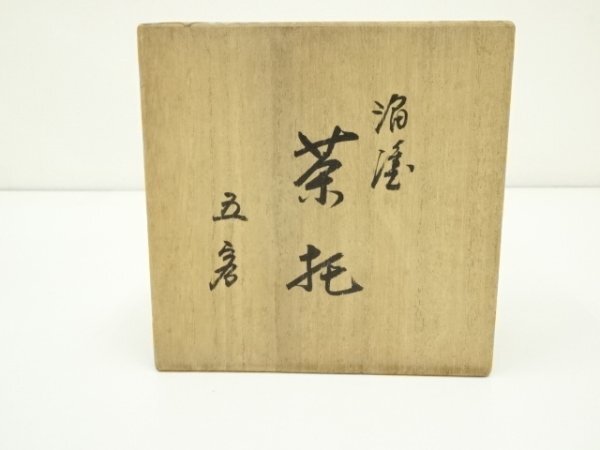 溜塗
茶托
五客